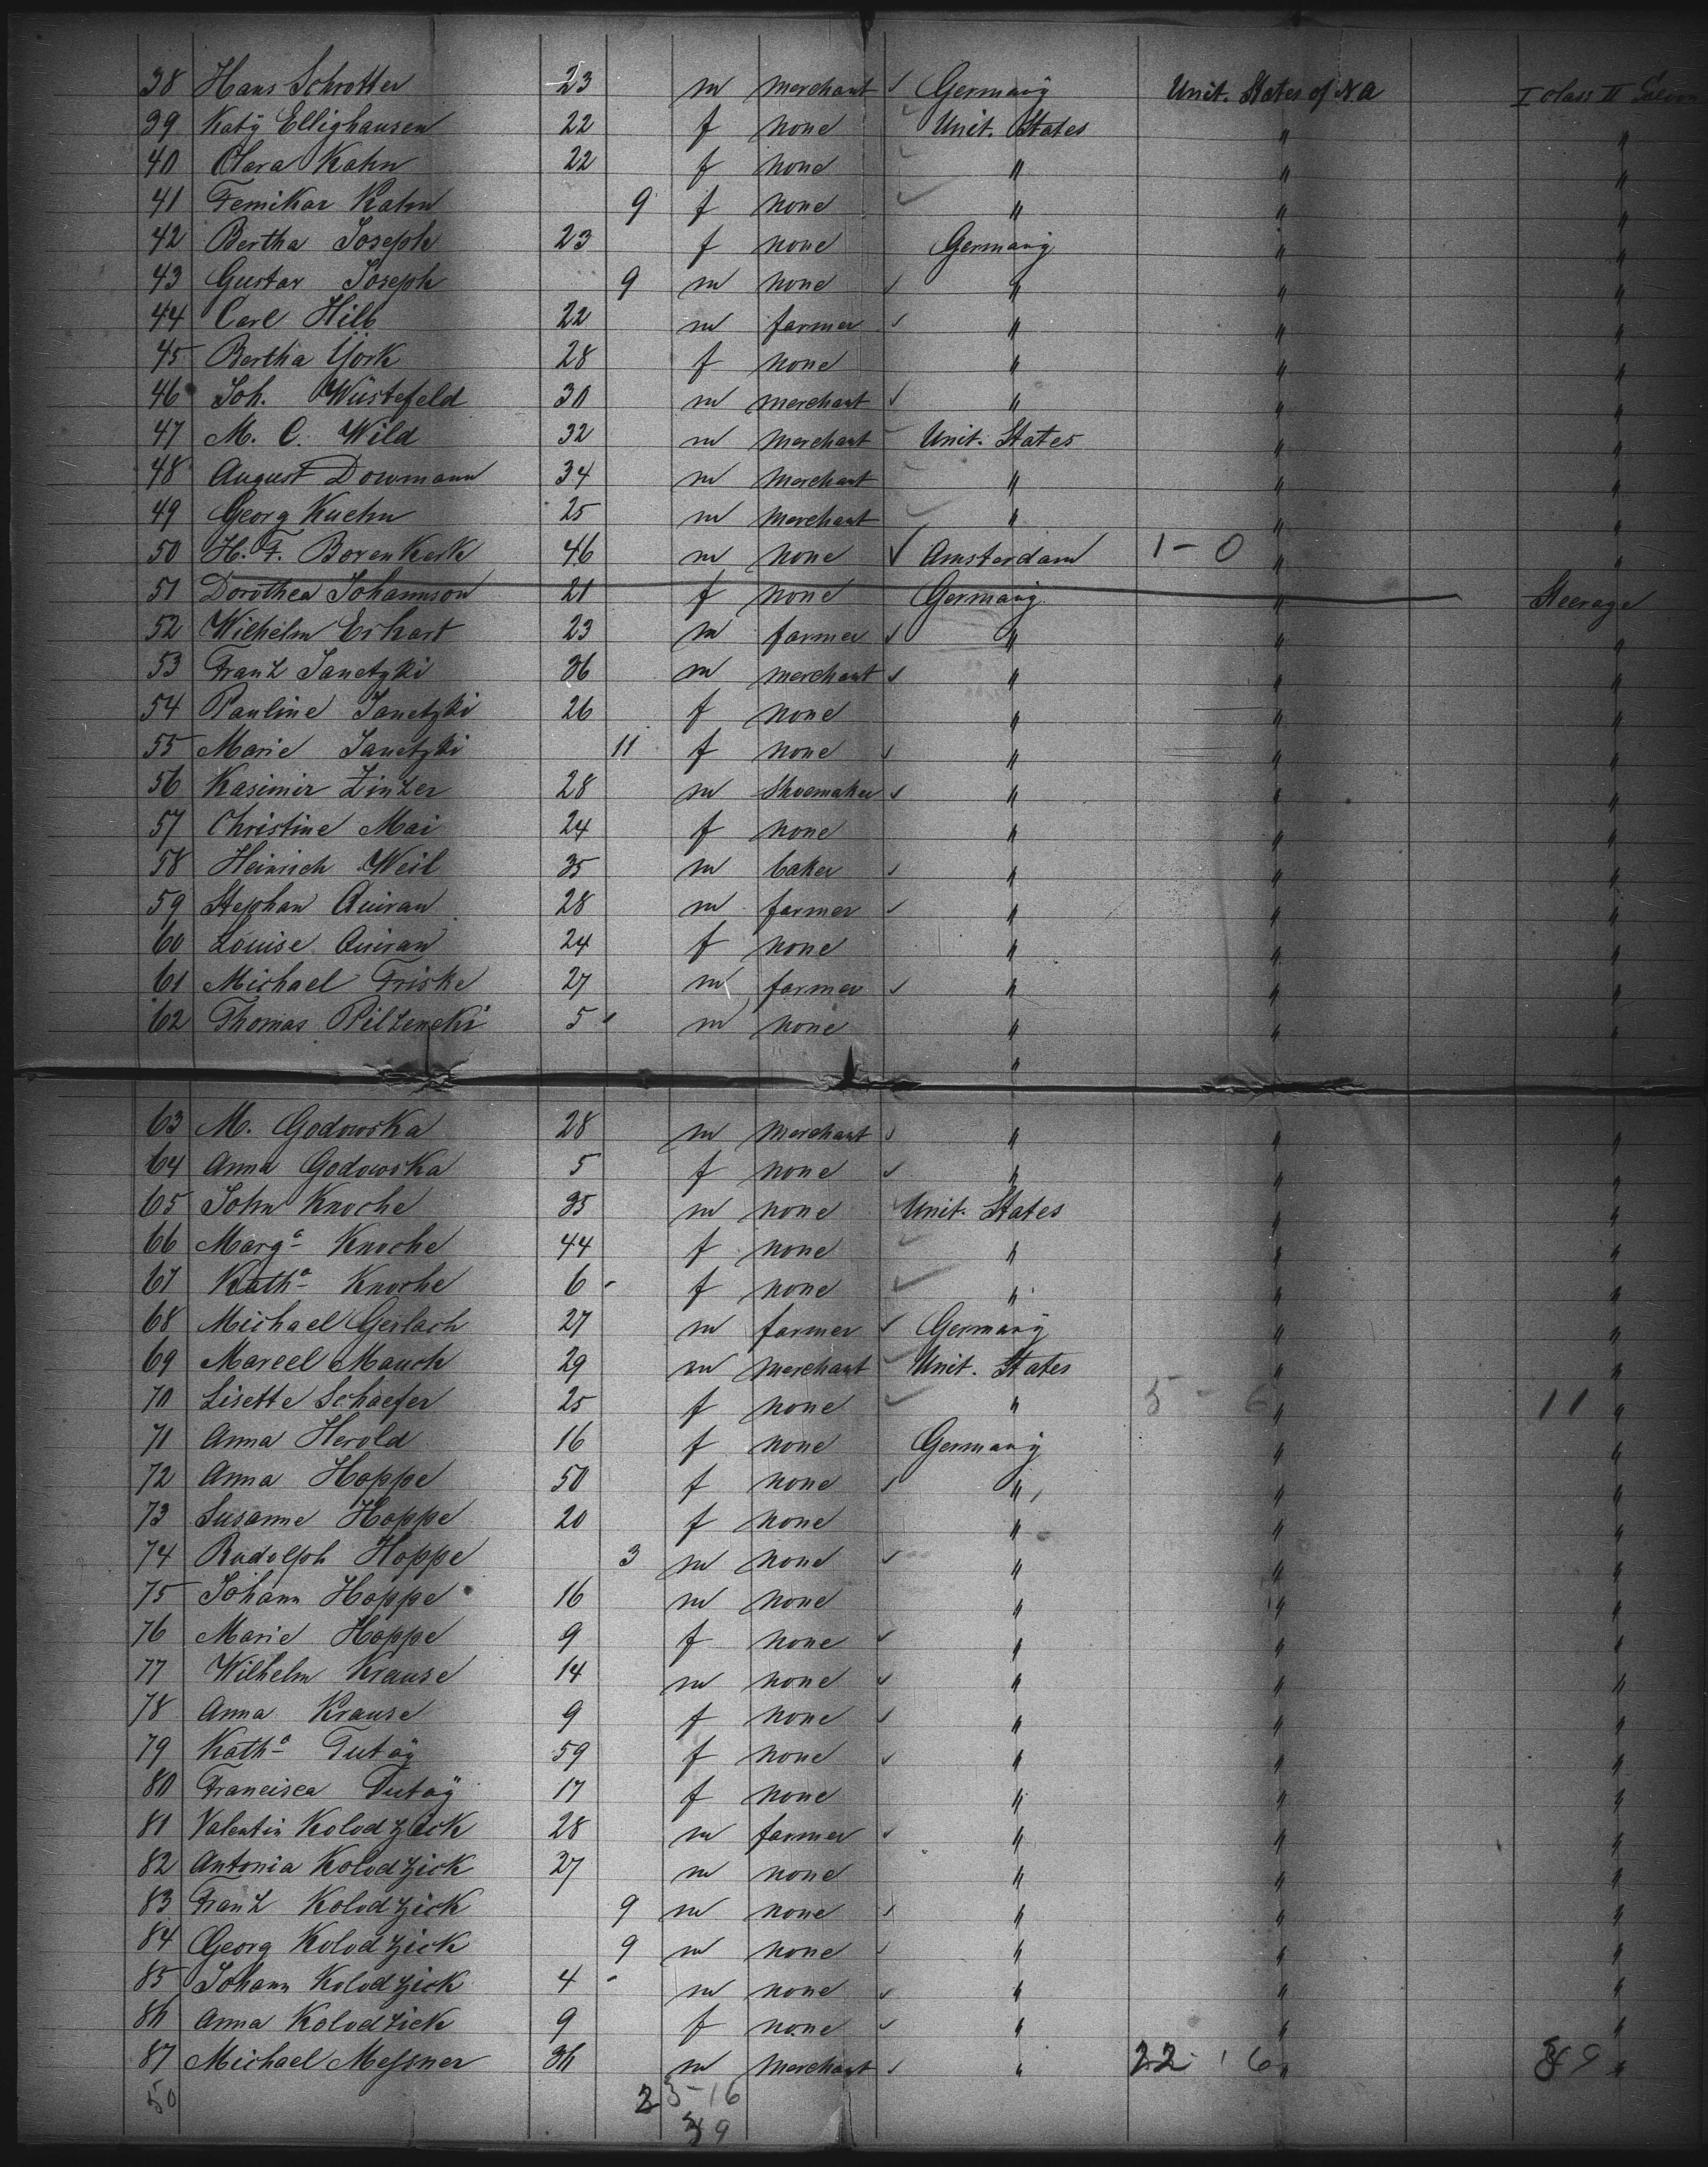 38 Hans Schrotter 23 m merchant ✓ Germany Unit. States of N A I class II Saloon
39 Katy Ellighausen 22 f none Unit. States " "
40 Clara Kahn 22 f none " " "
41 Femikar Kahn 9 f none " " "
42 Bertha Joseph 23 f none Germany " "
43 Gustav Joseph 9 m none ✓ " " "
44 Carl Hilb 22 m farmer ✓ " " "
45 Bertha York 28 f none " " "
46 Joh. Wüstefeld 30 m merchant ✓ " " "
47 M. C. Wild 32 m merchant Unit. States " "
48 August Dowmann 34 m merchant " " "
49 Georg Kuehn 25 m merchant " " "
50 H. F. Bovenkerk 46 m none ✓ Amsterdam 1 - 0 " "
51 Dorothea Johannson 21 f none Germany " Steerage
52 Wilhelm Erhart 23 m farmer ✓ " " "
53 Franz Janetzki 36 m merchant ✓ " " "
54 Pauline Janetzki 26 f none " " "
55 Marie Janetzki 11 f none ✓ " " "
56 Kasimir Zinzer 28 m Shoemaker ✓ " " "
57 Christine Mai 24 f none " " "
58 Heinrich Weil 35 m baker ✓ " " "
59 Stephan Quiran 28 m farmer ✓ " " "
60 Louise Quiran 24 f none " " "
61 Michael Friske 27 m farmer ✓ " " "
62 Thomas Pilzencki 5 m none " " "
"
63 M. Godowska 28 m merchant ✓ " " "
64 Anna Godowska 5 f none ✓ " " "
65 John Knoche 35 m none Unit. States " "
66 Margª Knoche 44 f none " " "
67 Kathª Knoche 6 f none " " "
68 Michael Gerlach 27 m farmer ✓ Germany " "
69 Marcel Mauch 29 m merchant Unit. States " "
70 Lisette Schaefer 25 f none " 5 - 6 " 11 "
71 Anna Herold 16 f none Germany " "
72 Anna Hoppe 50 f none ✓ " " "
73 Susanne Hoppe 20 f none " " "
74 Rudolph Hoppe 3 m none ✓ " " "
75 Johann Hoppe 16 m none " " "
76 Marie Hoppe 9 f none ✓ " " "
77 Wilhelm Krause 14 m none ✓ " " "
78 Anna Krause 9 f none ✓ " " "
79 Kathª Tutay 59 f none ✓ " " "
80 Francisca Tutay 17 f none " " "
81 Valentin Kolodzick 28 m farmer ✓ " " "
82 Antonia Kolodzick 27 m none " " "
83 Franz Kolodzick 9 m none ✓ " " "
84 Georg Kolodzick 9 m none ✓ " " "
85 Johann Kolodzick 4 m none ✓ " " "
86 Anna Kolodzick 9 f none ✓ " " "
87 Michael Messner 36 m merchant ✓ " 22 16 " 39 "
50 23-16
39